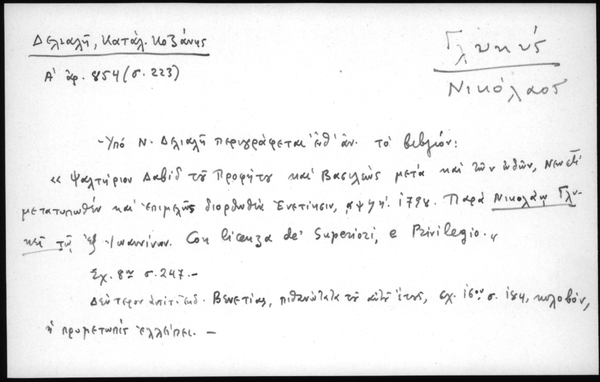 Δελιαλῆ, Κατάλ. Κοζάνης
Α' ἀρ. 854 (σ. 223)
Γλυκύς
Νικόλαος
Ὑπό Ν. Δελιαλῆ περιγράφεται ἐνθ' ἀν. τό βιβλίον:
«Ψαλτήριον Δαβίδ τοῦ Προφήτου καί Βασιλέως μετά καί τῶν ᾠδῶν, Νεωστί
μετατυπωθέν καί ἐπιμελῶς διορθωθέν Ἐνετίησιν, 1798. Παρά Νικολάῳ Γλυ-
κεῖ τῷ ἐξ Ἰωαννίνων. Con licenza de' Superiori, e Privilegio.»
Σχ. 8ον σ. 247.—
Δεύτερον ἀντίτ. ἐκδ. Βενετίας, πιθανώτατα τοῦ αὐτοῦ ἔτους, σχ. 16ον σ. 184, κολοβόν,
ἡ προμετωπίς ἐλλείπει. —